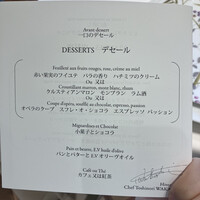 Avant dessert
一口のデセール
DESSERTS デセール
Feuilleté aux fruits rouges, rose, crème au miel
赤い果実のフイユテ バラの香り ハチミツのクリーム
Ou 又は
Croustillant marron, mont blanc, rhum
クルスティアンマロン モンブラン ラム酒
Ou 又は
Coupe d'opéra, soufflé au chocolat, espresso, passion
オペラのクープ スフレ・オ・ショコラ エスプレッソ パッション
Mignardises et Chocolat
小菓子とショコラ
Pain et beurre, E.V huile d'olive
パンとバターとEVオリーヴオイル
Café ou Thé
カフェ又は紅茶
Chef